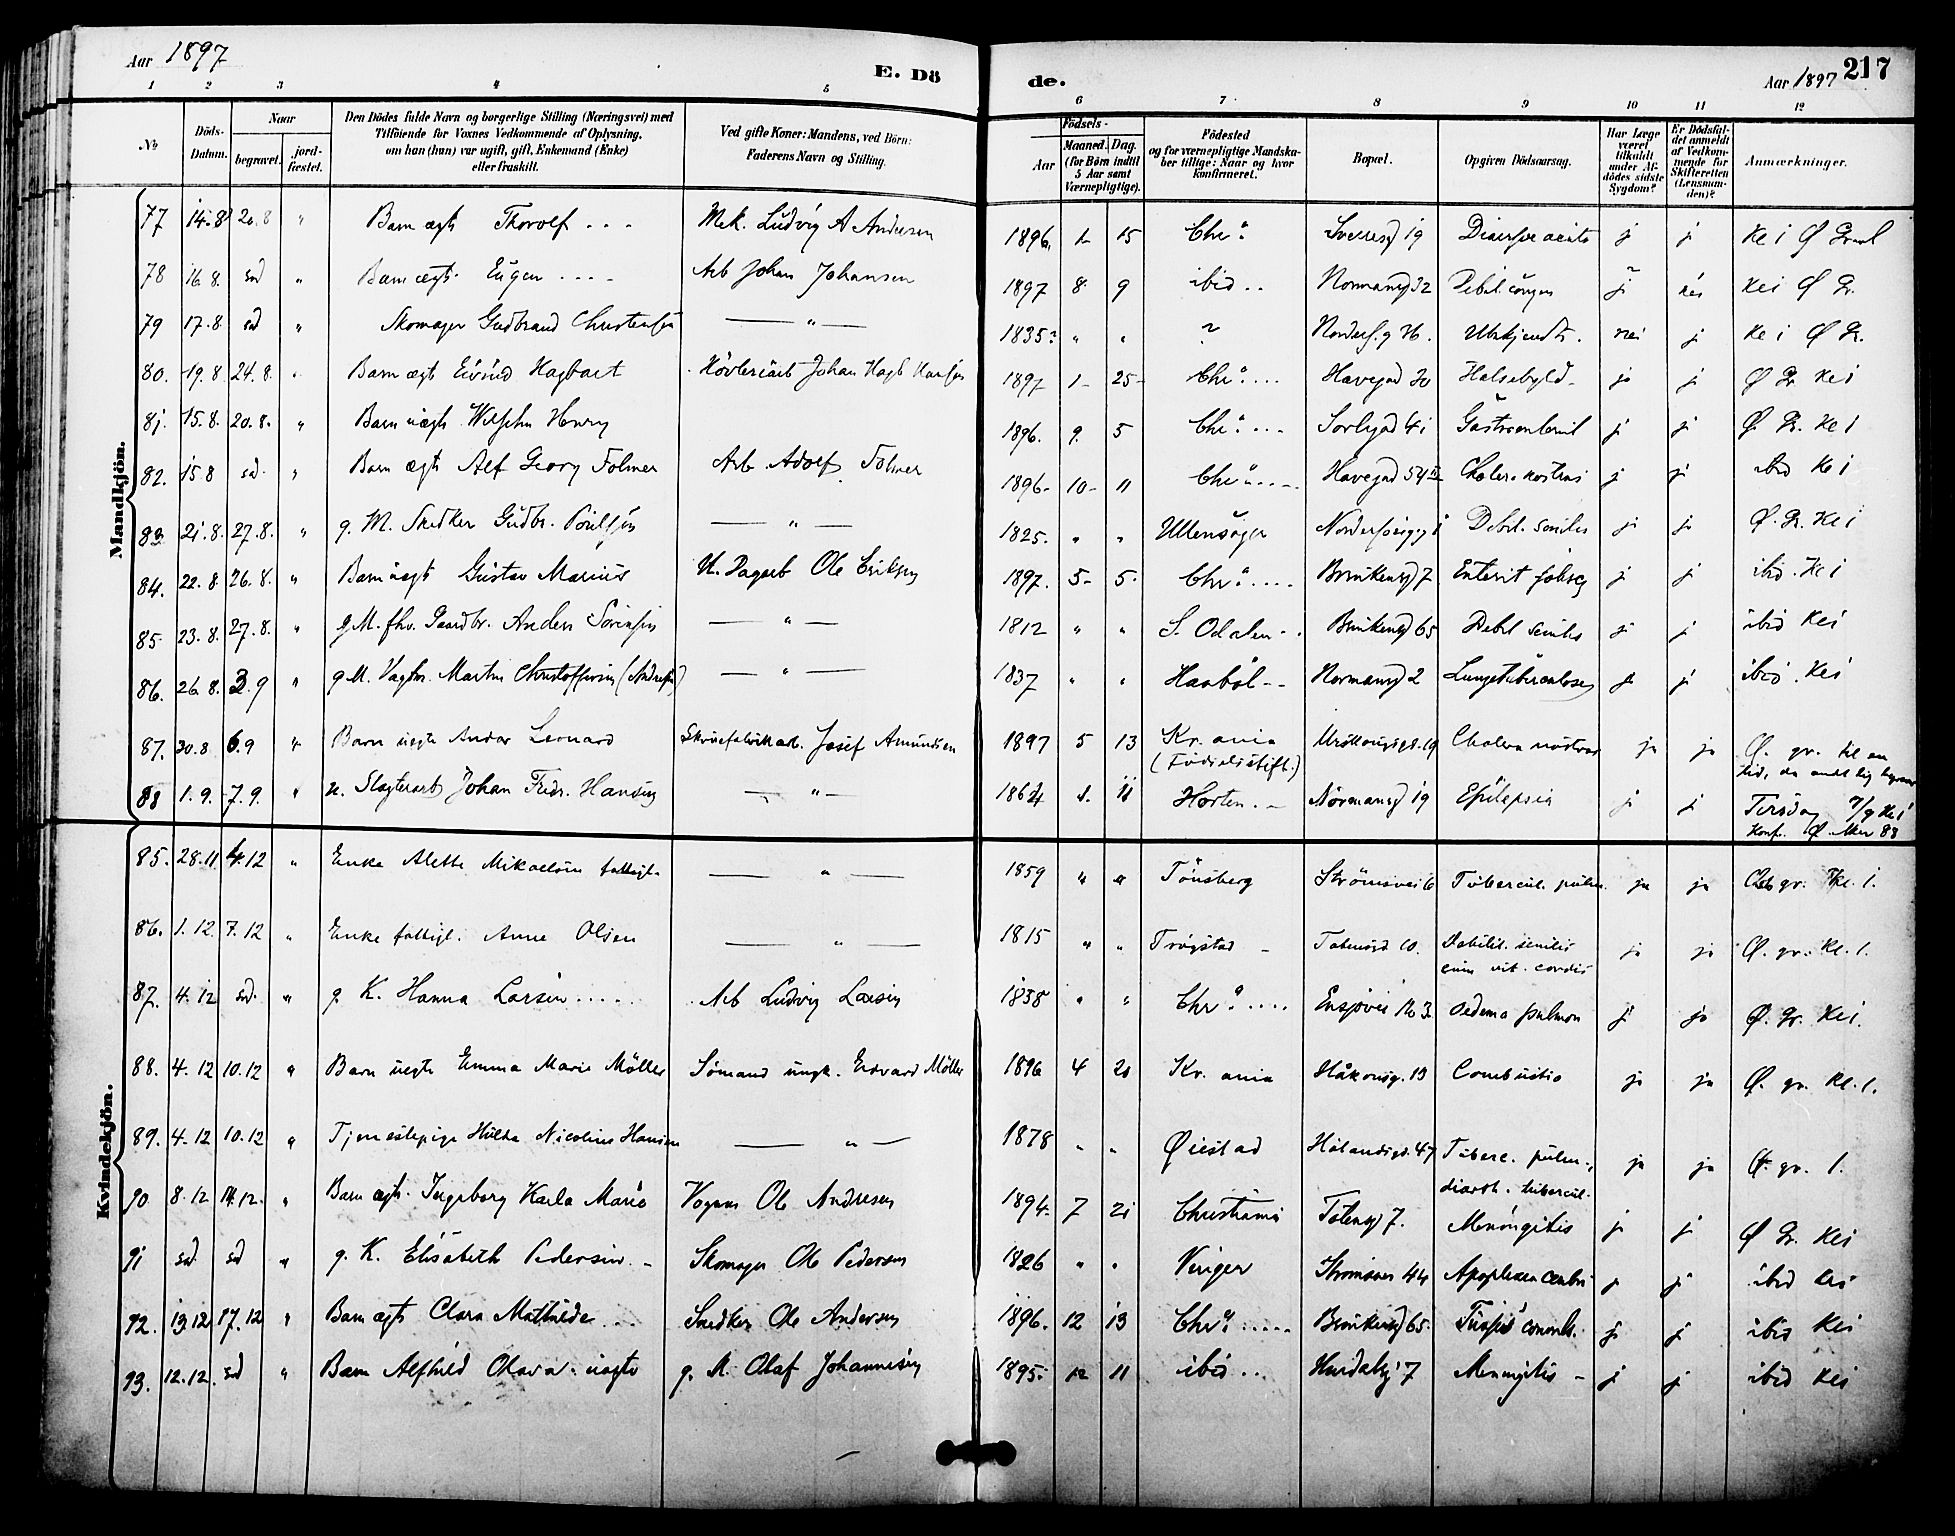 Aar 1897
E. Dö
de.
Aar 1897 217
1 2 3 4 5 6 7 8 9 10 11 12
№
Döds-Datum.
Naar
begravet.
jord-fæstet.
Den Dödes fulde Navn og borgerlige Stilling (Næringsvei) med
Tilföiende for Voxnes Vedkommende af Oplysning,
om han (hun) var ugift, gift, Enkemand (Enke)
eller fraskilt.
Ved gifte Koner: Mandens, ved Börn:
Faderens Navn og Stilling.
Födsels-
Aar
Maaned. Dag.
(for Börn indtil
5 Aar samt
Værnepligtige).
Födested
og for værnepligtige Mandska-
ber tillige: Naar og hvor
konfirmeret.
Bopæl.
Opgiven Dödsaarsag.
Har Læge
været
tilkaldt
under Af-
dödes sidste
Sygdom?
Er Dödsfal-
det anmeldt
af Vedkom-
mende for
Skifteretten
(Lensman-
den)?
Anmærkninger.
Mandkjön.
77 14.8 20.8 " Barn ægte Thorolf . . . Mek. Ludvig A Andersen 1896 1 15 Chr.a 19 j j Kei Ø
78 16.8. sd " Barn ægte Eugen . . . . Arb Johan Johansen 1897 8 9 ibid . . Normansgd 32 Debil. congen j nei Kei Ø Gr.
79 17.8 sd " Skomager Gudbrand Christensen — " — 1835? " " ? Ubekjendt. nei j Kei Ø Gr.
80. 19.8 24.8. " Barn ægte Eivind Hagbart Johan Hagb Hansen 1897 1 25 Chr.a . . . Havegad 30 Halsebyld ja j Ø Gr Kei
81. 15.8. 20.8. " Barn uægte Wilhelm Henry 1896. 9. 5 Chr.a . . . Sorligad 41 Gastroenterit j j Ø Gr. Kei
82. 15 8 sd. " Barn ægte Alf Georg Folmer Arb Adolf Folmer 1896 10 11 Chr.a . . . Havegad 54 Cholera nostras j j ibid Kei
83 21.8. 27.8. " g. M. Snedker Gudbr. Poulsen — " — 1825. " " Ullensager Debil. senilis j j Ø. Gr. Kei
84. 22.8. 26.8. " Barn uægte Gustav Marius U. Dagarb Ole Eriksen 1897. 5 5 Chr.a . . . . Brinkensgd 7 j j ibid. Kei
85 23.8. 27.8. " g M. fhv. Gaardbr. Anders Sörensen — " — 1812 " " S. Odalen . . Brinkensgd 65 Debil senilis j j ibid Kei
86. 26.8. 3.9 " g M. Vagtm. Martin Christoffersen — " — 1837 " " Haaböl Normansgd 2 Lungetuberculose j j ibid. Kei
87. 30.8 6.9 " Barn uægte Andor Leonard Skruefabrikarb. Josef Amundsen 1897 5 13 Kr.ania
(Födselsstift.) 19 Cholera nostras ja ja Ø. gr. Kl
88 1.9. 7.9. " u. Slagterarb Johan Fredr. Hansen — " — 1864 11 Horten. Normansgd 19 Epilepsia j j Tirsdag 7/9 Kei
Konf. Ø 83
Kvindekjön.
85. 28.11 4.12 " Enke Alette Mikaelsen fattigl. — " — 1859 " " Tönsberg Strömsvei 6 Tubercul. pulm. ja ja gr. Kl. 1.
86. 1.12. 7.12 " Enke fattigl. Anne Olsen — " — 1815 " " Trögstad Totensgd 10. Debilit. senilis
cum vit. cordis ja ja Ø. gr. Kl. 1.
87. 4.12 sd. " g. K. Hanna Larsen . . . . Arb Ludvig Larsen 1858 " " Chr.a . . . . Ensjövei No 3. Oedema pulmon j ja Ø. Gr. Kei.
88. 4.12 10.12 " Barn uægte Emma Marie Möller Sömand ungk. Edvard Möller 1896 4 20 Kr.ania Håkonsg. 13 Combustio ja ja Ø. gr. Kl. 1.
89. 4.12 10.12 " Tjenestepige Hulda Nicoline Hansen — " — 1878 " " Øiestad Hölandsgd. 47 Tuberc. pulm.,
diarrh. tubercul. ja ja Ø. gr. 1.
90 8.12 14.12. " Barn ægte. Ingeborg Karla Marie Vognm Ole Andresen 1894. 7 21 Christiania Totensgd 7. Meningitis j j Ø Gr. Kei
91 sd. sd " g. K. Elisabeth Pedersen . Skomager Ole Pedersen 1826 " " Vinger Stromsvei 44 Apoplexia cerebri j j ibid Kei
92. 13.12 17.12 " Barn ægte Clara Mathilde . . . Snedker Ole Andersen 1896. 12 13 Chr.a . . . . . Brinkensgd 65. Tussis convuls. j j ibid Kei
93. 12.12. sd " Barn Alfhild Olava. uægte g. M. Olaf Johannesen 1895. 12 11 ibid . . . 7 Meningitis j j ibid Kei